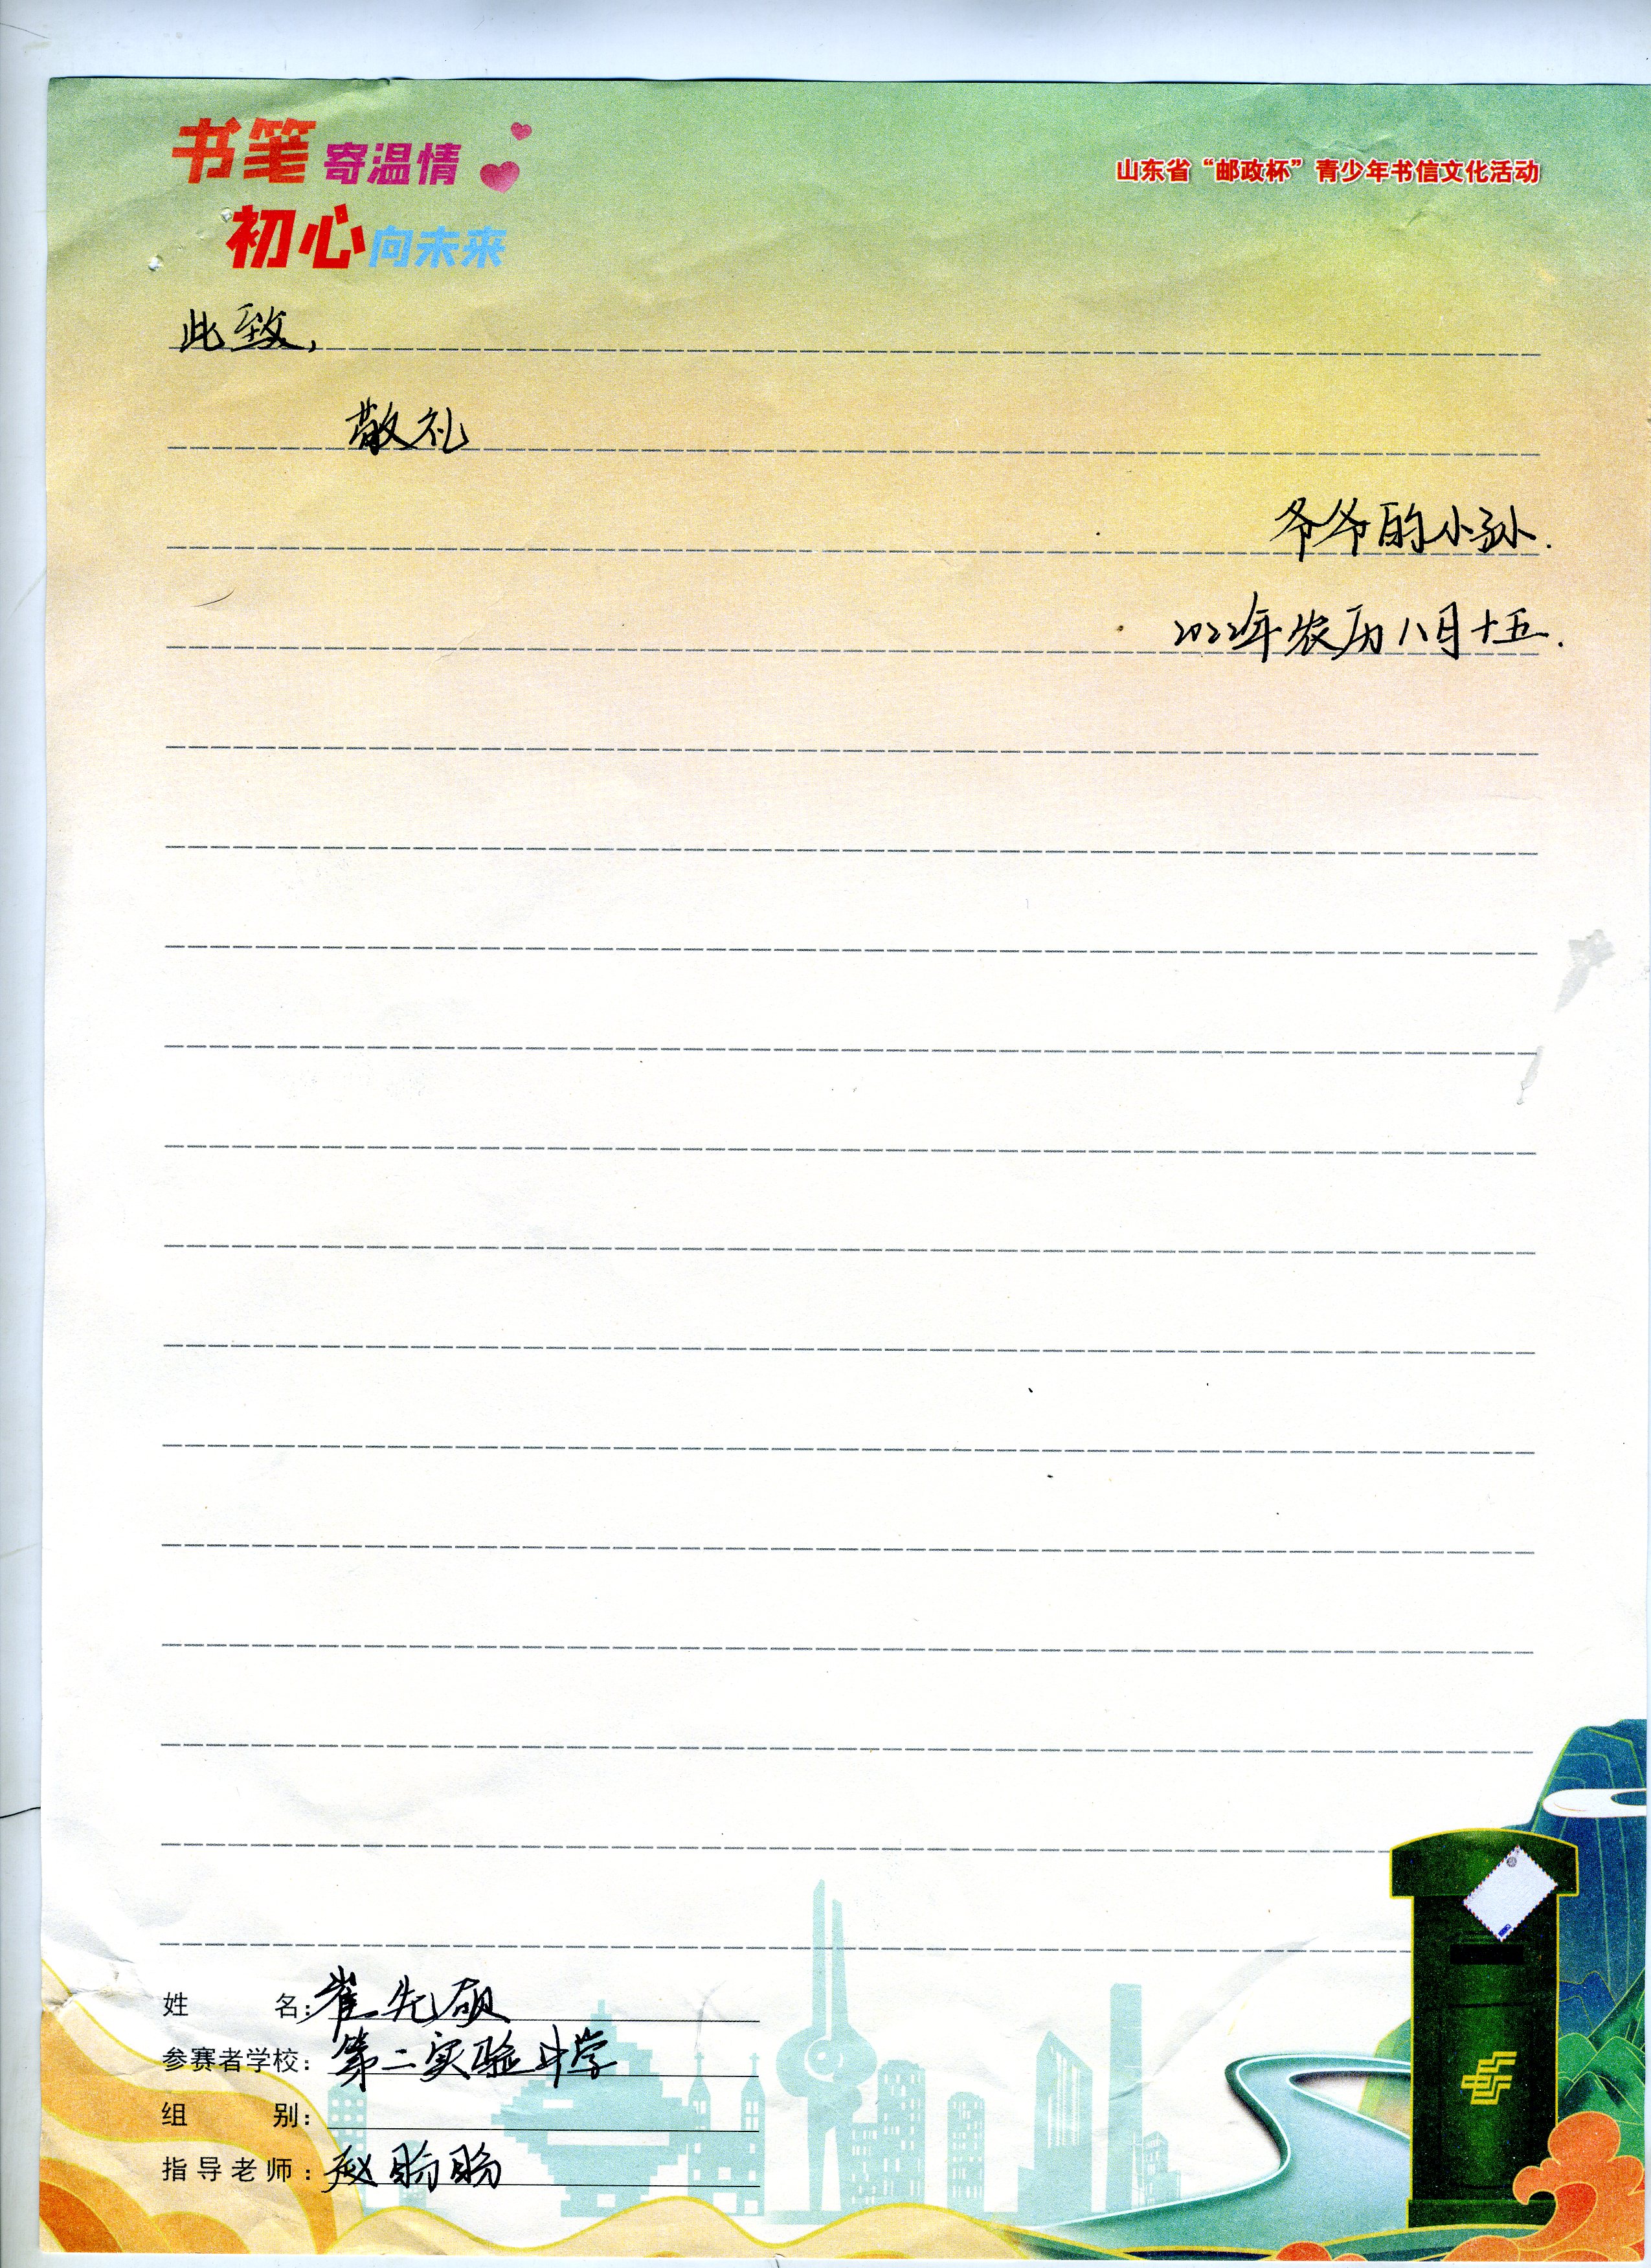 书笔寄温情
初心向未来
山东省“邮政杯”青少年书信文化活动
此致,
敬礼
爷爷的小孙.
2022年农历八月十五.
姓名:崔先硕
参赛者学校:第二实验中学
组别:
指导老师:赵盼盼